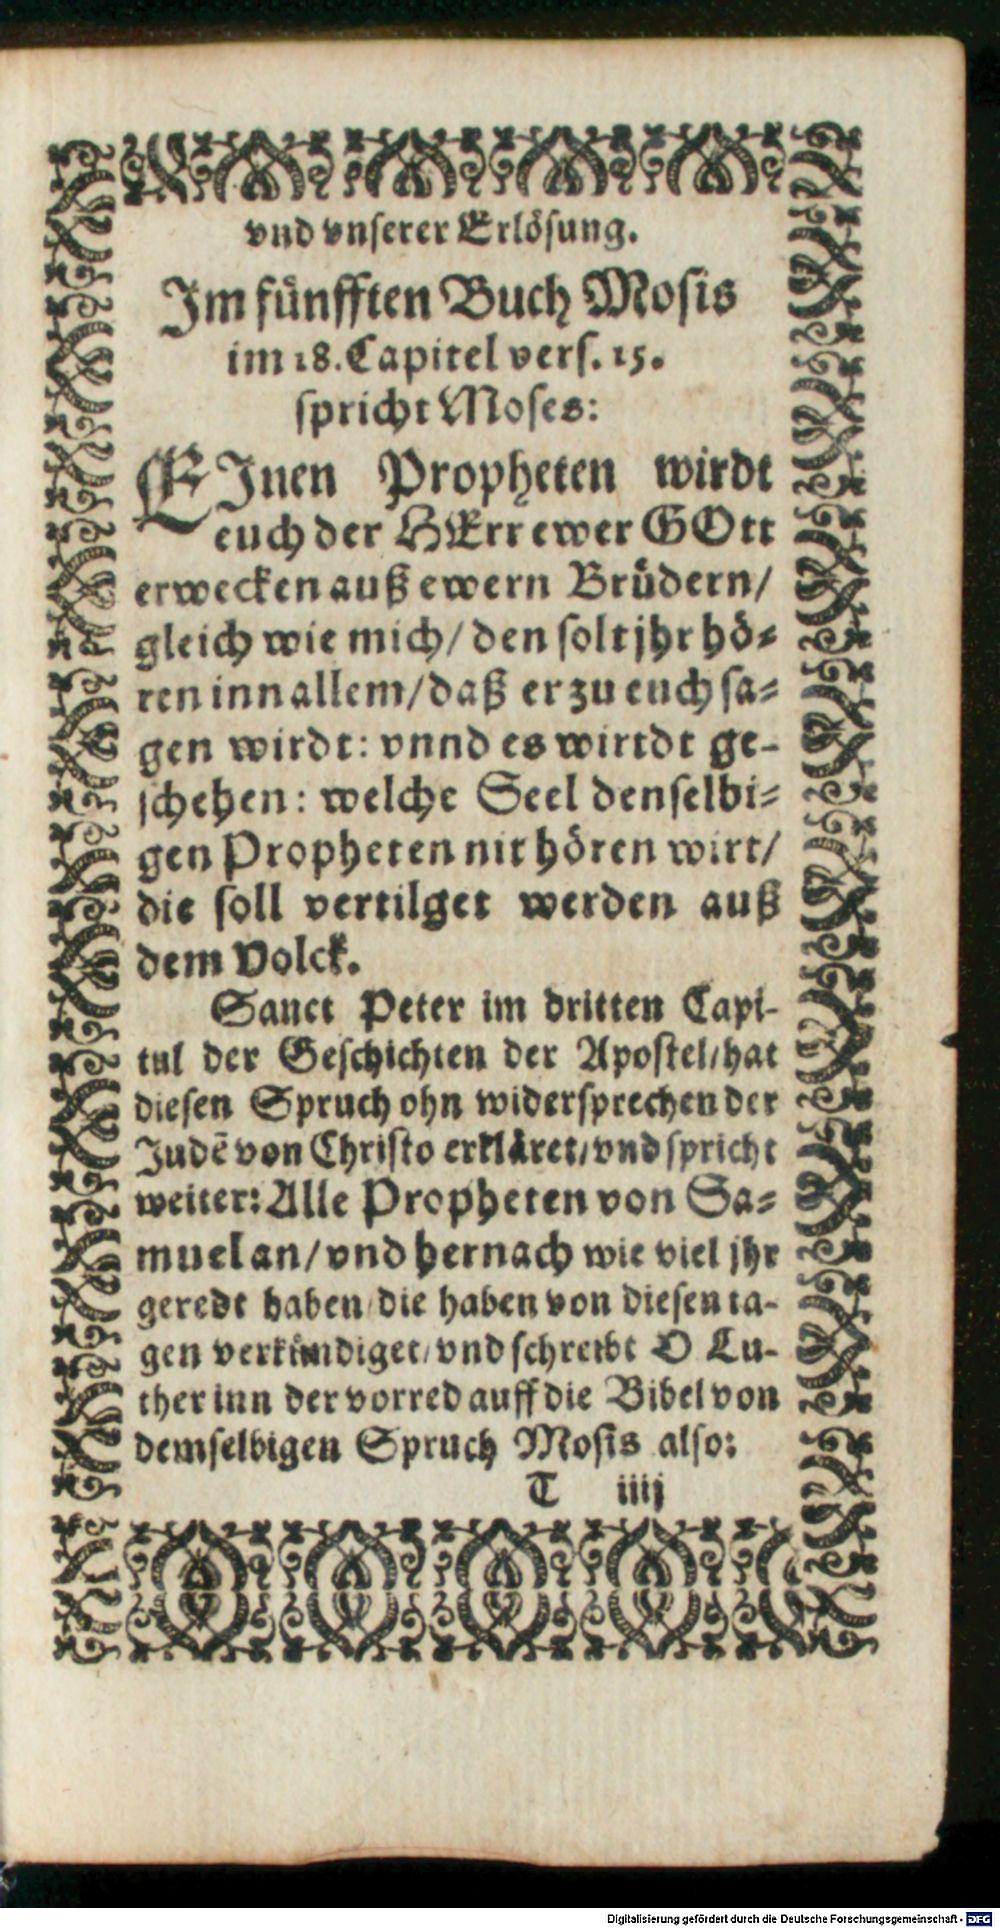 vnd vnserer Erlösung.
Im fünfften Buch Mosis
im 18. Capitel vers. 15.
spricht Moses:
EInen Propheten wirdt
euch der HErr ewer GOtt
erwecken auß ewern Brüdern/
gleich wie mich/ den solt jhr hö-
ren inn allem/ daß er zu euch sa-
gen wirdt: vnnd es wirtdt ge-
schehen: welche Seel denselbi-
gen Propheten nit hören wirt/
die soll vertilget werden auß
dem Volck.
Sanct Peter im dritten Capi-
tul der Geschichten der Apostel/ hat
diesen Spruch ohn widersprechen der
Judē von Christo erkläret/ vnd spricht
weiter: Alle Propheten von Sa-
muel an/ vnd hernach wie viel jhr
geredt haben/ die haben von diesen ta-
gen verkündiget/ vnd schreibt D Lu-
ther inn der vorred auff die Bibel von
demselbigen Spruch Mosis also:
T iiij
Digitalisierung gefördert durch die Deutsche Forschungsgemeinschaft - DFG